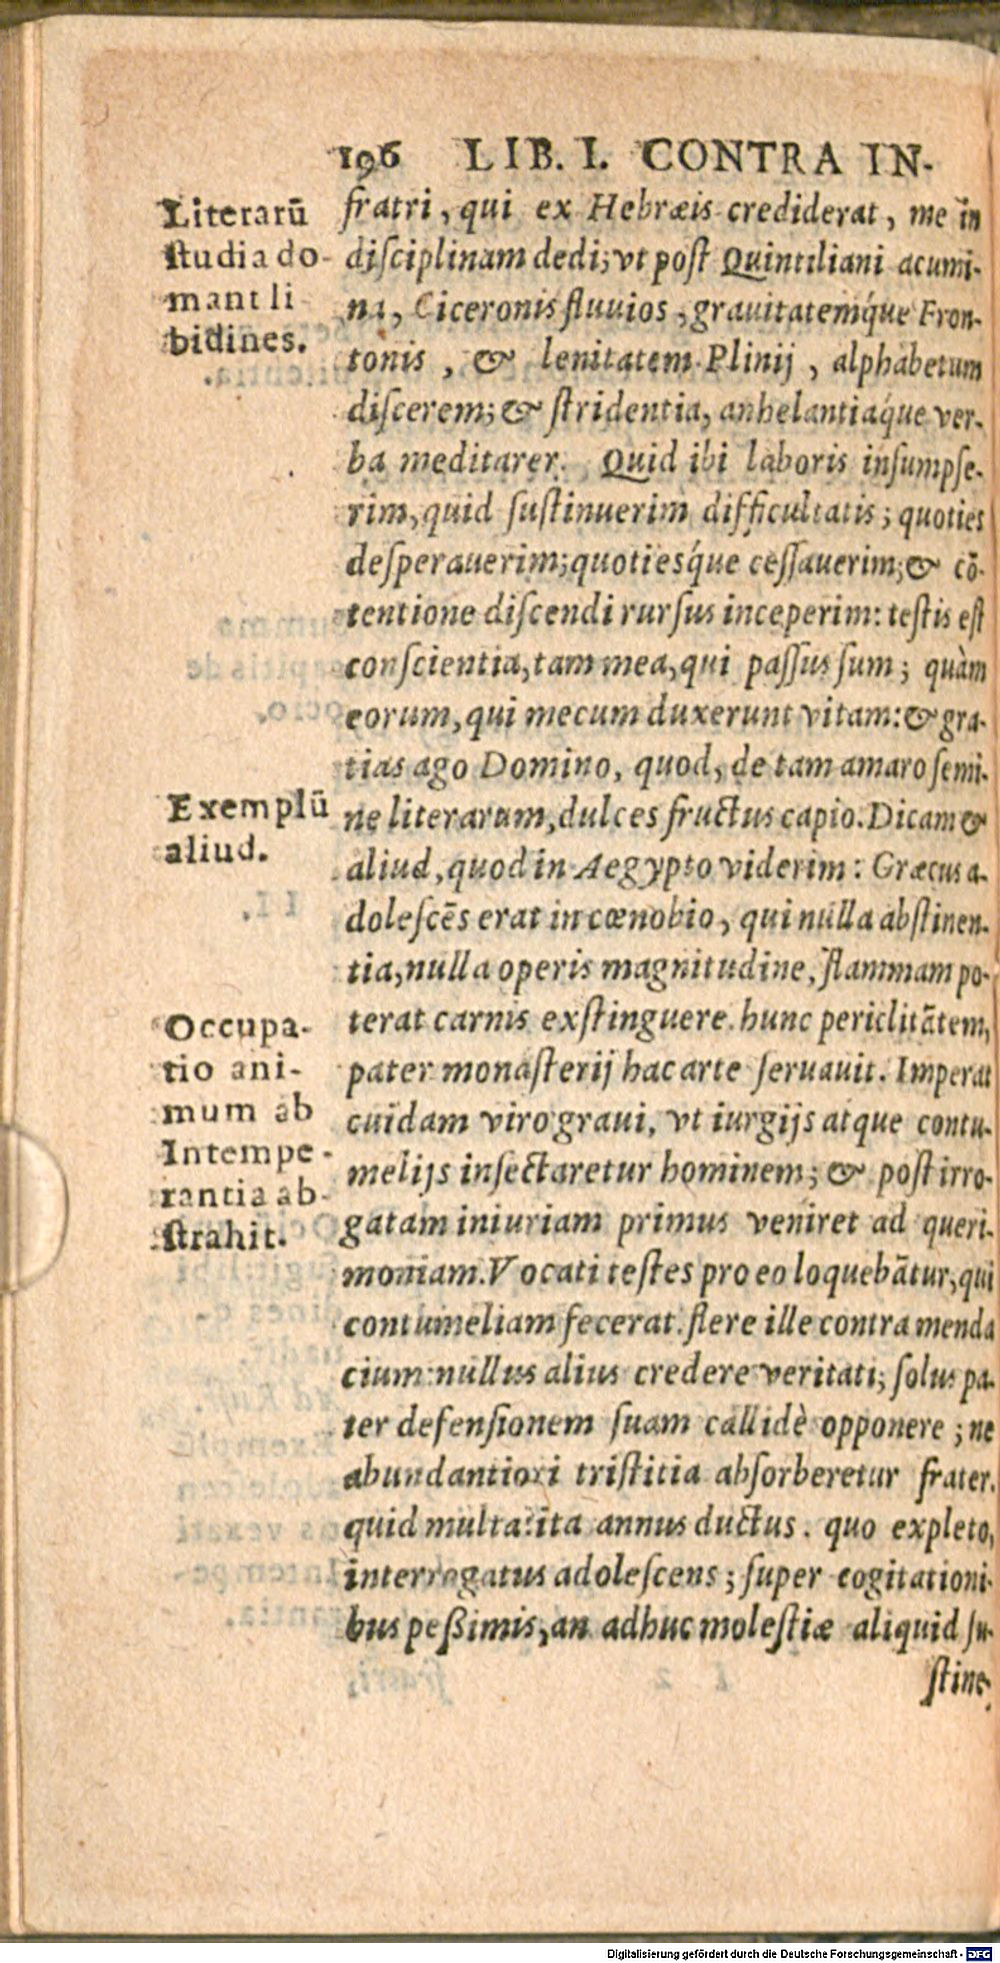 196 LIB. I. CONTRA IN-
Literarū
studia do-
mant li
bidines.
fratri, qui ex Hebræis crediderat, me in
disciplinam dedi; vt post Quintiliani acumi-
na, Ciceronis fluuios, grauitatemq́ue Fron-
tonis, & lenitatem Plinij, alphabetum
discerem; & stridentia, anhelantiaq́ue ver-
ba meditarer. Quid ibi laboris insumpse-
rim, quid sustinuerim difficultatis; quoties
desperauerim; quotiesq́ue cessauerim; & cō-
tentione discendi rursus inceperim: testis est
conscientia, tam mea, qui passus sum; quàm
eorum, qui mecum duxerunt vitam: & gra-
tias ago Domino, quod, de tam amaro semi-
Exemplū
aliud.
ne literarum, dulces fructus capio. Dicam &
aliud, quod in Aegypto viderim: Græcus a-
dolescēs erat in cœnobio, qui nulla abstinen-
tia, nulla operis magnitudine, flammam po-
Occupa-
tio ani-
mum ab
Intempe-
rantia ab-
strahit.
terat carnis exstinguere. hunc periclitātem,
pater monasterij hac arte seruauit. Imperat
cuidam viro graui, vt iurgijs atque contu-
melijs insectaretur hominem; & post irro-
gatam iniuriam primus veniret ad queri-
moniam. Vocati testes pro eo loquebātur, qui
contumeliam fecerat. flere ille contra menda
cium: nullus alius credere veritati; solus pa-
ter defensionem suam callidè opponere; ne
abundantiori tristitia absorberetur frater.
quid multa? ita annus ductus. quo expleto,
interrogatus adolescens; super cogitationi-
bus peßimis, an adhuc molestiæ aliquid su-
stine
Digitalisierung gefördert durch die Deutsche Forschungsgemeinschaft - DFG